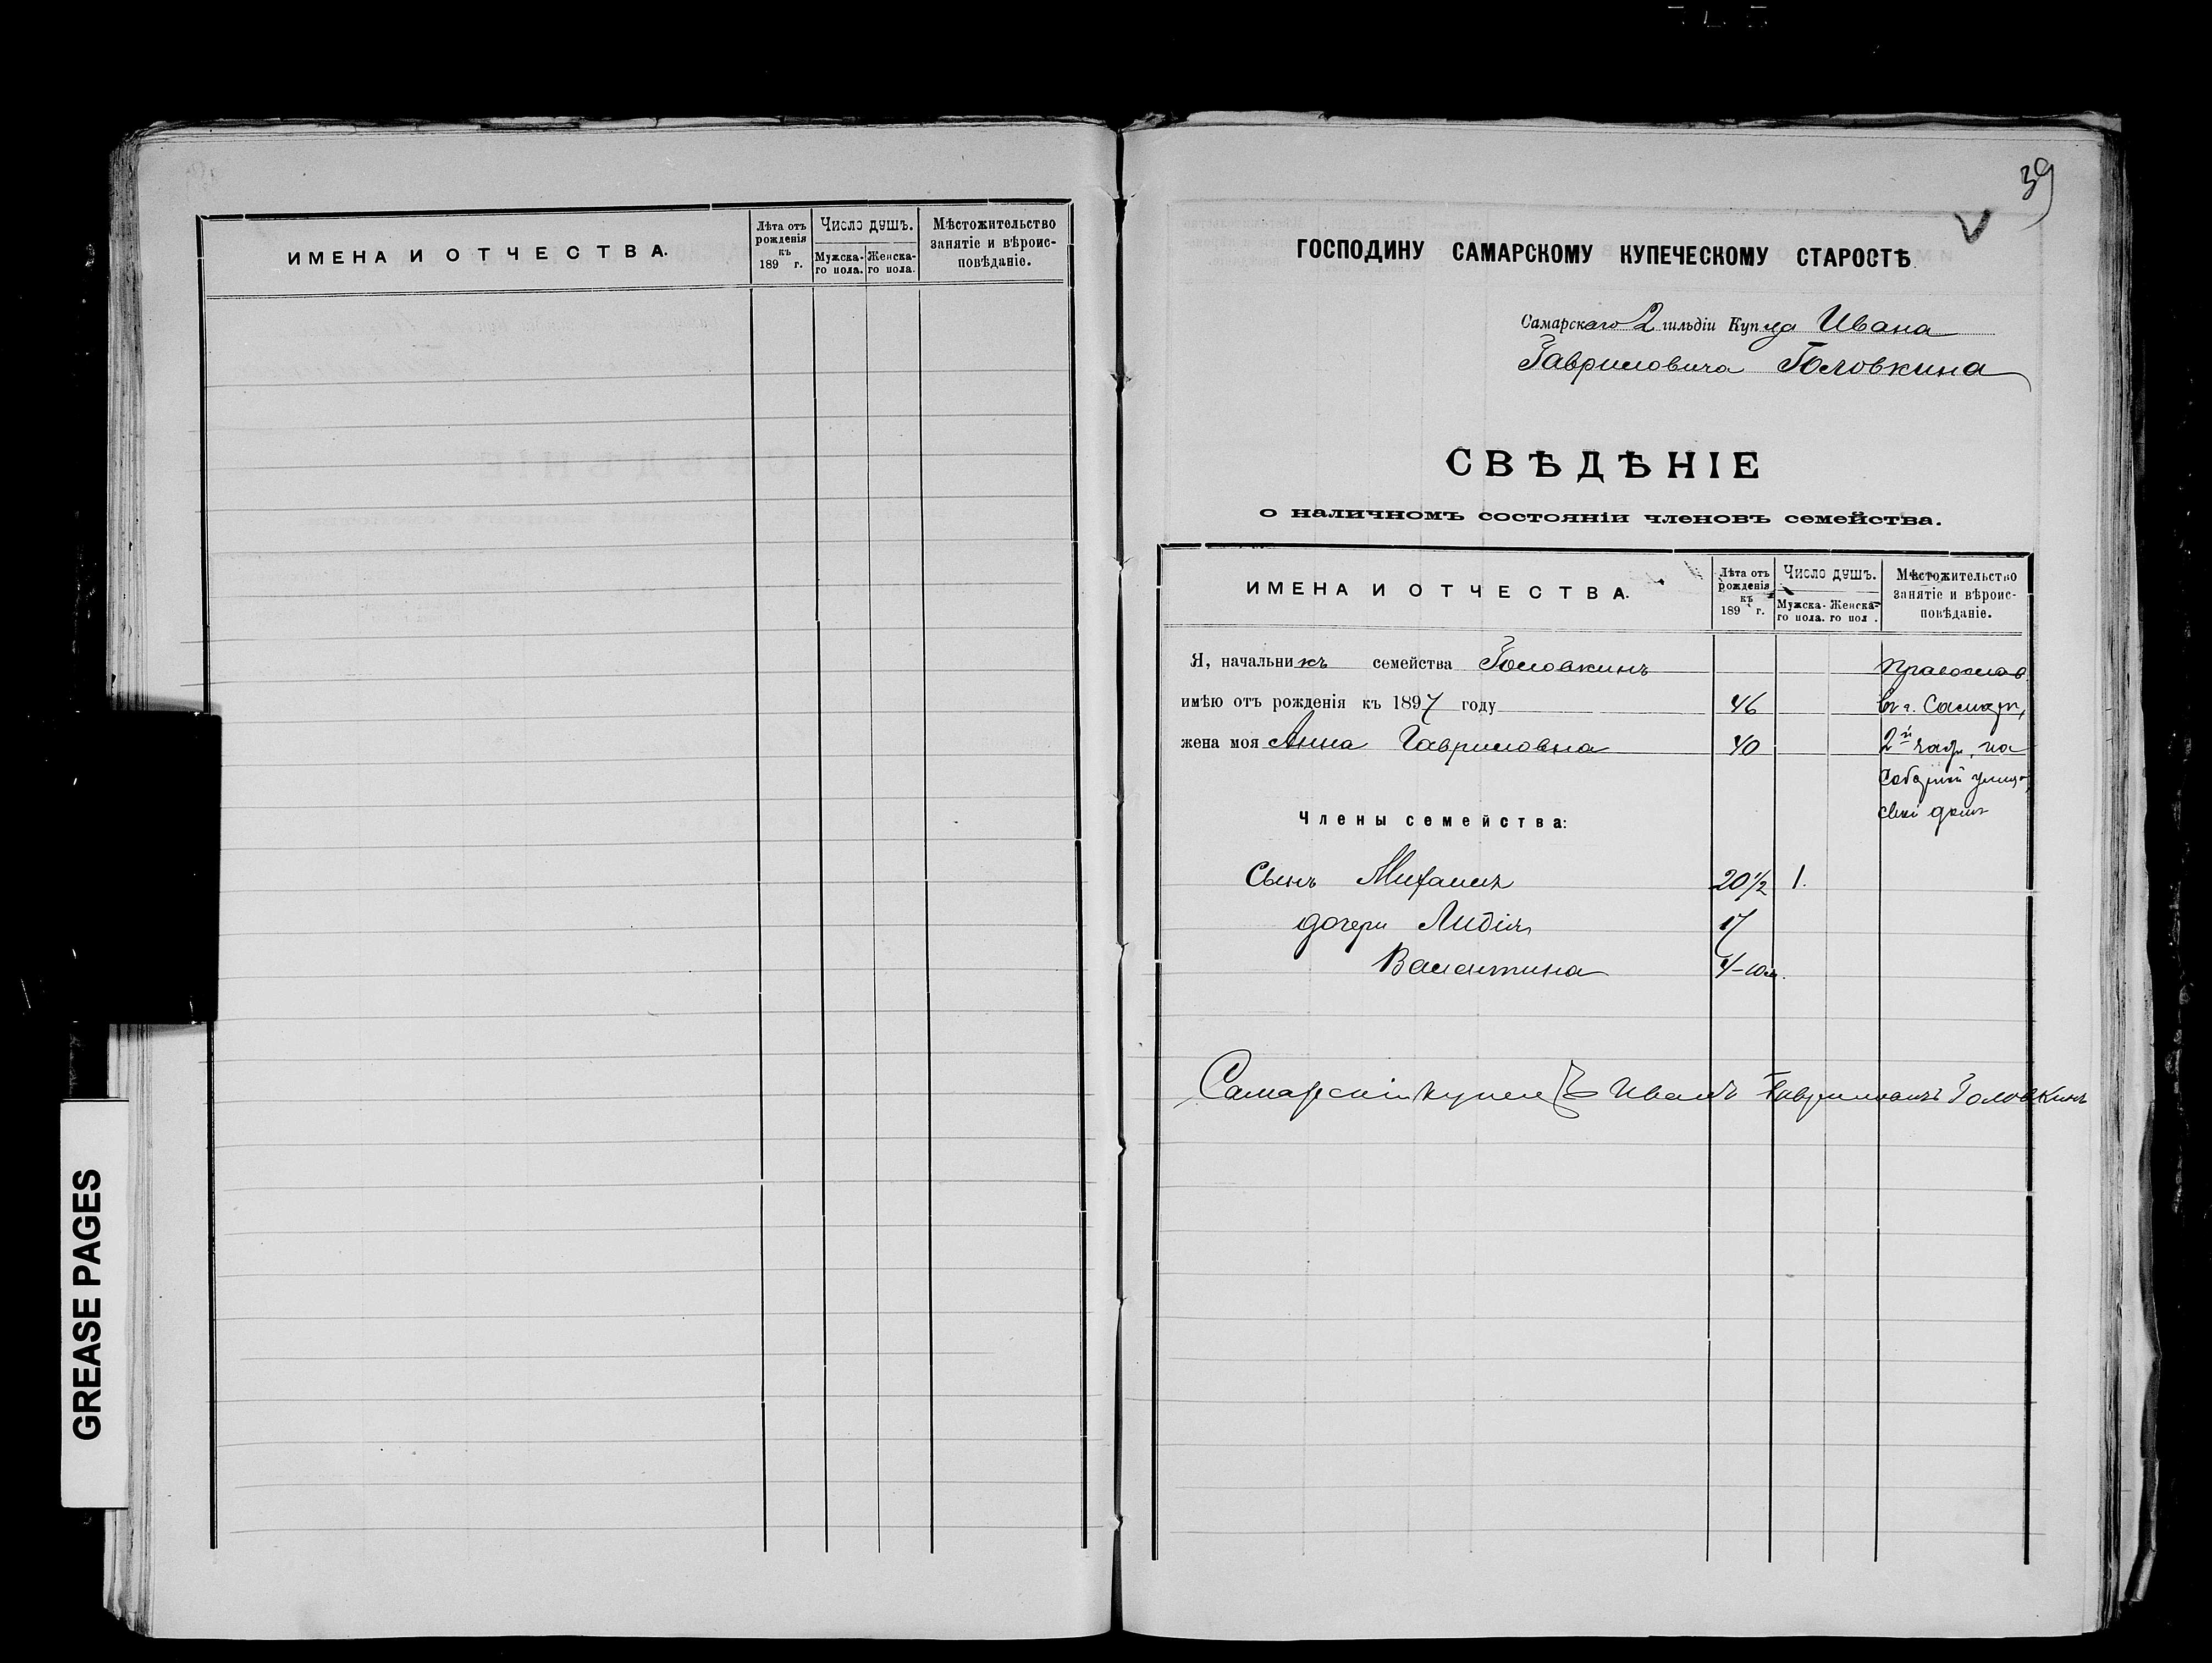 ИМЕНА И ОТЧЕСТВА.
Лѣта отъ рожденія къ 189 г.
Число душъ.
Мужска-го пола.
Женска-го пола.
Мѣстожительство занятіе и вѣроис-повѣданіе.
39
ГОСПОДИНУ САМАРСКОМУ КУПЕЧЕСКОМУ СТАРОСТѢ
Самарскаго 2 гильдіи Купца Ивана
Гавриловича Головкина
СВѢДѢНІЕ
о наличномъ состояніи членовъ семейства.
ИМЕНА И ОТЧЕСТВА.
Лѣта отъ рожденія къ 189 г.
Число душъ.
Мужска-го пола.
Женска-го пол .
Мѣстожительство занятіе и вѣроис-повѣданіе.
Я, начальникъ семейства Головкинъ православ
имѣю отъ рожденія къ 1897 году 46 въ г. Самарѣ,
жена моя Анна Гавриловна 40 2й части, на
Соборной улицѣ,
свой домъ
Члены семейства:
Сынъ Михаилъ 20½ 1.
дочери Лидія 17
Валентина 4-10м.
Самарскій купецъ Иванъ Гавриловичъ Головкинъ
GREASE PAGES